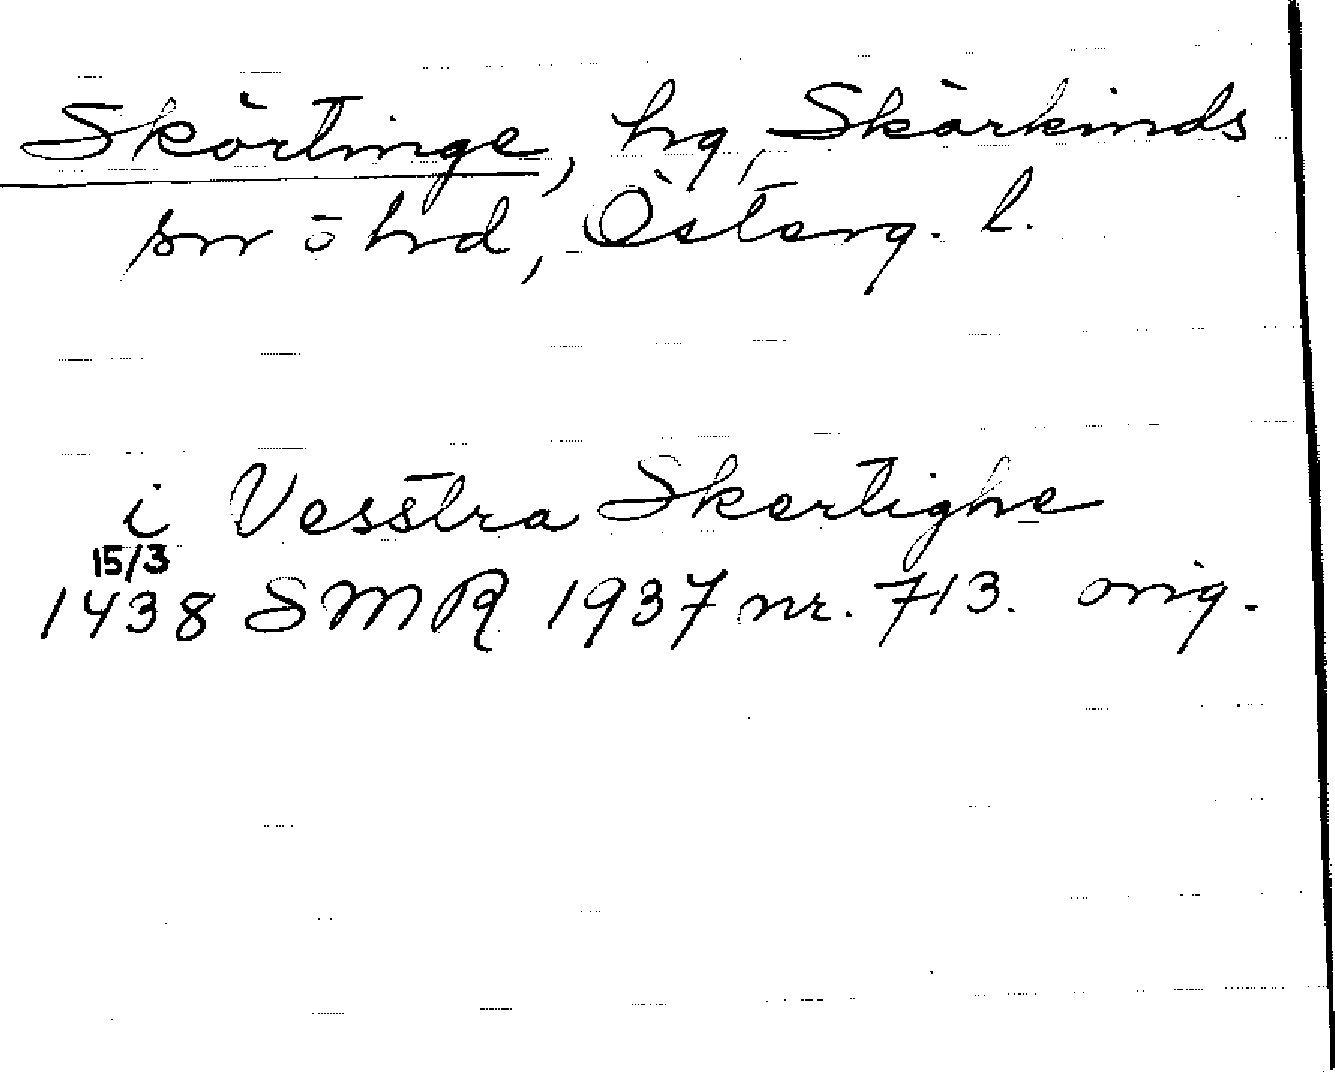 Skörtinge, hg, Skärkinds
sn o hd, Österg. l.
i Vesstra Skertighe
15/3
1438 SMR 1937 nr. 713. orig.